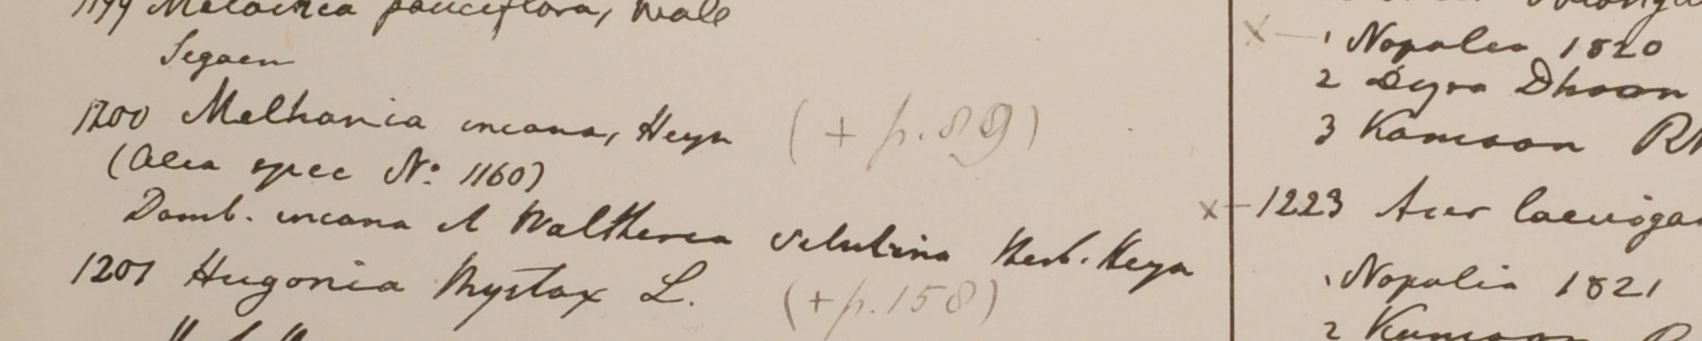 1199 Melochia pauciflora, Wall
Segaen
1200 Melhania incana, Heyn (+ p. 89)
(Alia spec No. 1160)
Domb. incana et Waltheria velutina Herb. Heyn
1201 Hugonia Mystax L. (+ p. 158)
1 Napalia 1820
2 Deyra Dhoon
3 Kamaon
x 1223 Acer laeviga
1 Napalia 1821
2 Kamaon